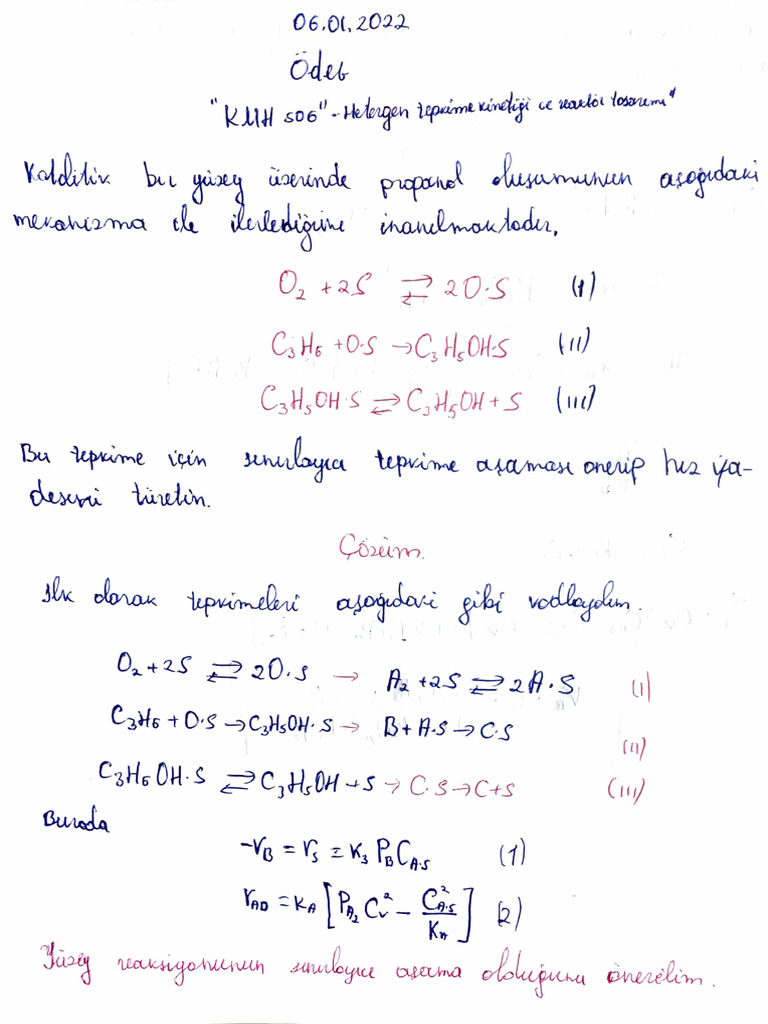 06.01.2022
Ödev
"KMH 506" - Heterojen tepkime kinetiği ve reaktör tasarımı"
Katalitik bir yüzey üzerinde propanol oluşumunun aşağıdaki
mekanizma ile ilerlediğine inanılmaktadır.
O₂ + 2S ⇌ 2O·S (I)
C₃H₆ + O·S → C₃H₅OH·S (II)
C₃H₅OH·S ⇌ C₃H₅OH + S (III)
Bu tepkime için sınırlayıcı tepkime aşaması önerip hız ifa-
desini türetin.
Çözüm.
İlk olarak tepkimeleri aşağıdaki gibi kodlayalım.
O₂ + 2S ⇌ 2O·S → A₂ + 2S ⇌ 2A·S (I)
C₃H₆ + O·S → C₃H₅OH·S → B + A·S → C·S (II)
C₃H₆OH·S ⇌ C₃H₅OH + S → C·S → C + S (III)
Burada
-r_B = r_S = k₃ P_B C_A·S (1)
r_AD = k_A [P_A₂ C_v² - C²_A·S / K_A] (2)
Yüzey reaksiyonunun sınırlayıcı aşama olduğunu önerelim.